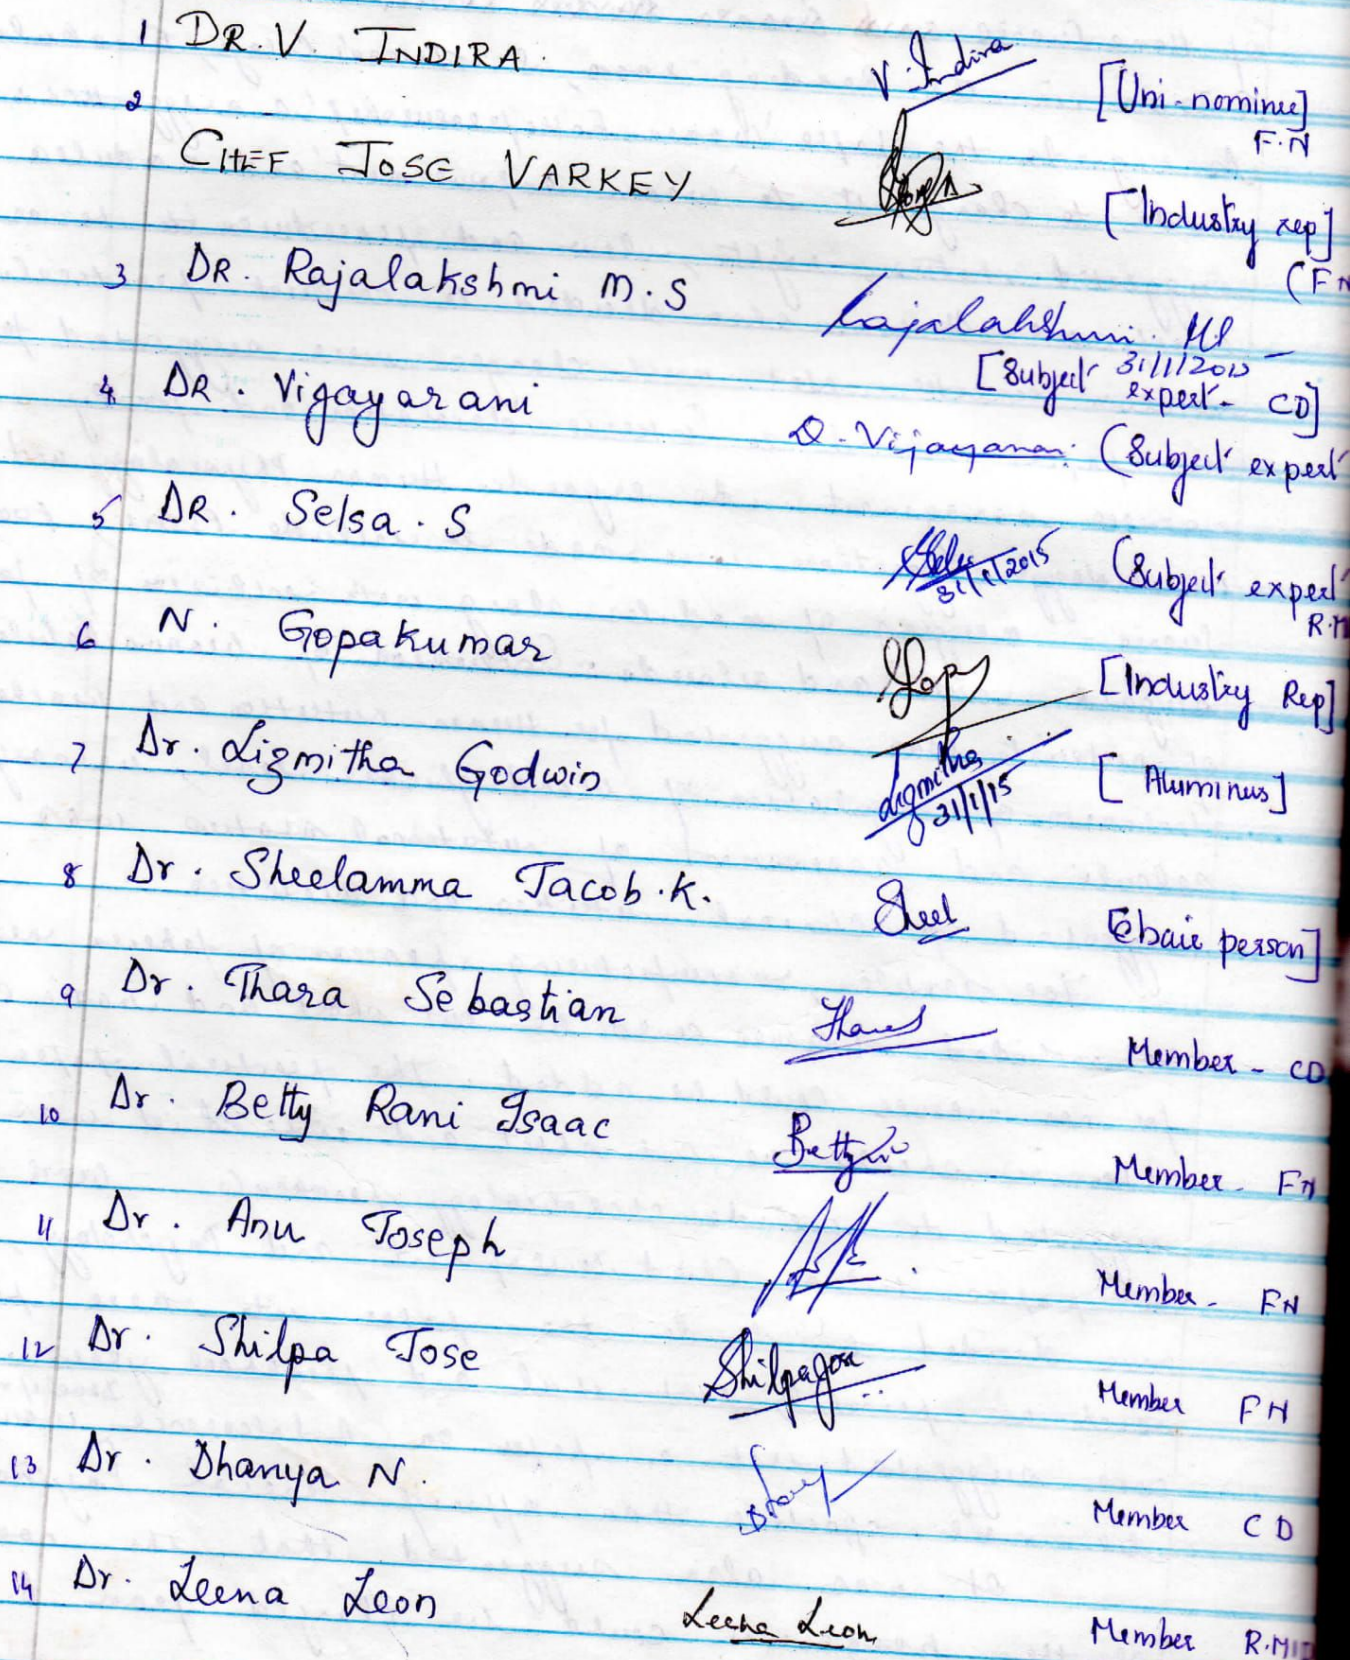 1 DR. V. INDIRA. V. Indira [Uni-nominee]
F.N
2
CHEF JOSE VARKEY [Industry rep]
(FN
3 DR. Rajalakshmi M.S Rajalakshmi MS
31/1/2015
[Subject expert - CD]
4 DR. Vijayarani D. Vijayarani (Subject expert
5 DR. Selsa. S 31/1/2015 (Subject expert
R.M
6 N. Gopakumar Gop [Industry Rep]
7 Dr. Lizmitha Godwin Lizmitha [Aluminus]
31/1/15
8 Dr. Sheelamma Jacob.K. Sheel [Chair person]
9 Dr. Thara Sebastian Thara Member - CD
10 Dr. Betty Rani Isaac Betty Member - FN
11 Dr. Anu Joseph Member - FN
12 Dr. Shilpa Jose Shilpa Jose Member FN
13 Dr. Dhanya N. Member CD
14 Dr. Leena Leon Leena Leon Member R.M